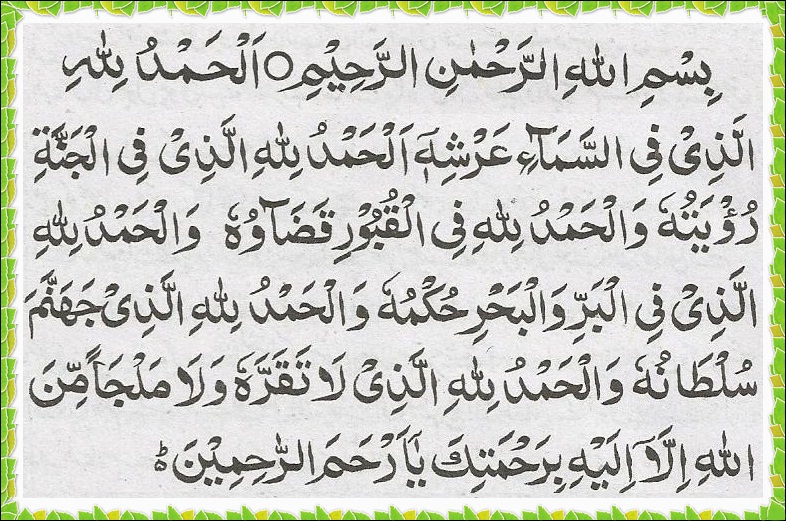 بِسْمِ اللهِ الرَّحْمٰنِ الرَّحِيْمِ ○ اَلْحَمْدُ لِلّٰهِ
الَّذِىْ فِى السَّمَآءِ عَرْشِهٖٓ اَلْحَمْدُ لِلّٰهِ الَّذِىْ فِى الْجَنَّةِ
رُؤْيَتُهٗ وَالْحَمْدُ لِلّٰهِ فِى الْقُبُوْرِ قَضَآوُهٗ وَالْحَمْدُ لِلّٰهِ
الَّذِىْ فِى الْبَرِّ وَالْبَحْرِ حُكْمُهٗ وَالْحَمْدُ لِلّٰهِ الَّذِىْ جَهَنَّمَ
سُلْطَانُهٗ وَالْحَمْدُ لِلّٰهِ الَّذِىْ لَا تَقَرَّهٗ وَلَا مَلْجَاً مِّنَ
اللهِ اِلَّآ اِلَيْهِ بِرَحْمَتِكَ يَآاَرْحَمَ الرّٰحِمِيْنَ ؕ